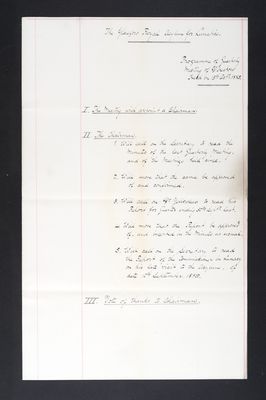 The Glasgow Royal Asylum for Lunatics.
Programme of Quarterly
Meeting of Directors
held on 1882.
I. The Meeting will appoint a Chairman
II. The Chairman
1. Will call on the Secretary to read the
Minutes of the last Quarterly Meeting,
and of the Meetings held since.
2. Will move that the same be approved
of and confirmed.
3. Will call on Dr Yellowlees to read his
Report for quarter ending last.
4. Will move that the Report be approved
of, and inserted in the Minutes as usual.
5. Will call on the Secretary to read
the Report of the Commissioner in Lunacy
on his late visit to the Asylum, of
date September 1882.
III. Vote of thanks to Chairman.